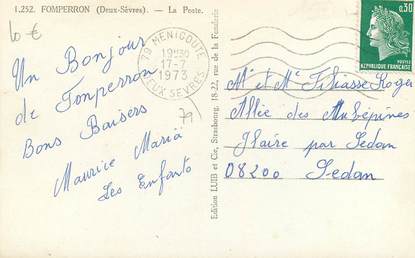 1.252. FOMPERRON (Deux-Sèvres). — La Poste.
10 €
Un Bonjour
de Fomperron
Bons Baisers
Maurice Maria
Les Enfants
79 MENIGOUTE
17-7
1973
DEUX SEVRES
79
Edition LUIB et Cie, Strasbourg, 18-22, rue de la Fonderie
0,30
POSTES
REPUBLIQUE FRANÇAISE
Mr et Me Filiasse Roger
Allée des Aubépines
Glaire par Sedan
08200 Sedan